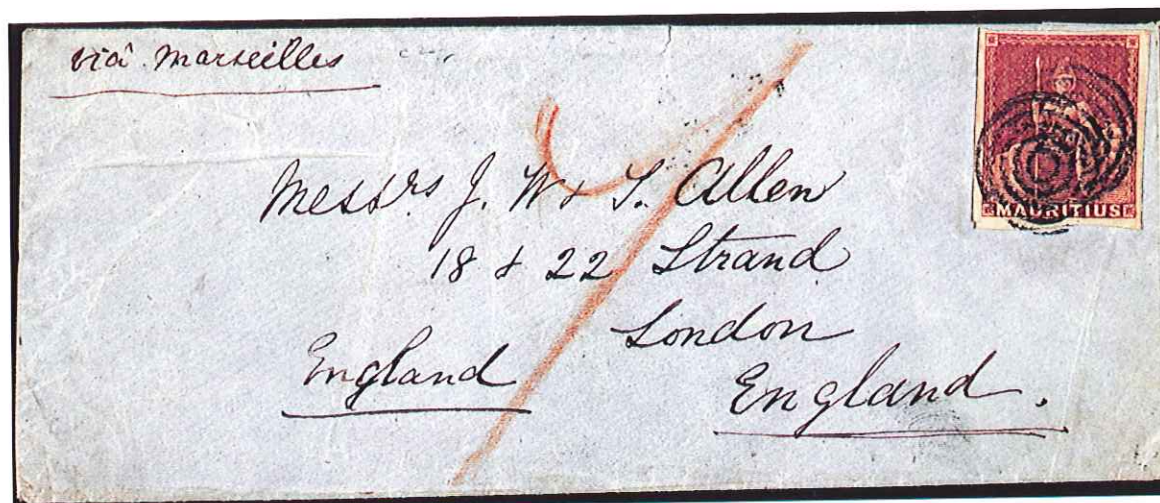 viâ Marseilles
MAURITIUS
Messrs J. W & S. Allen
18 & 22 Strand
London
England
England.